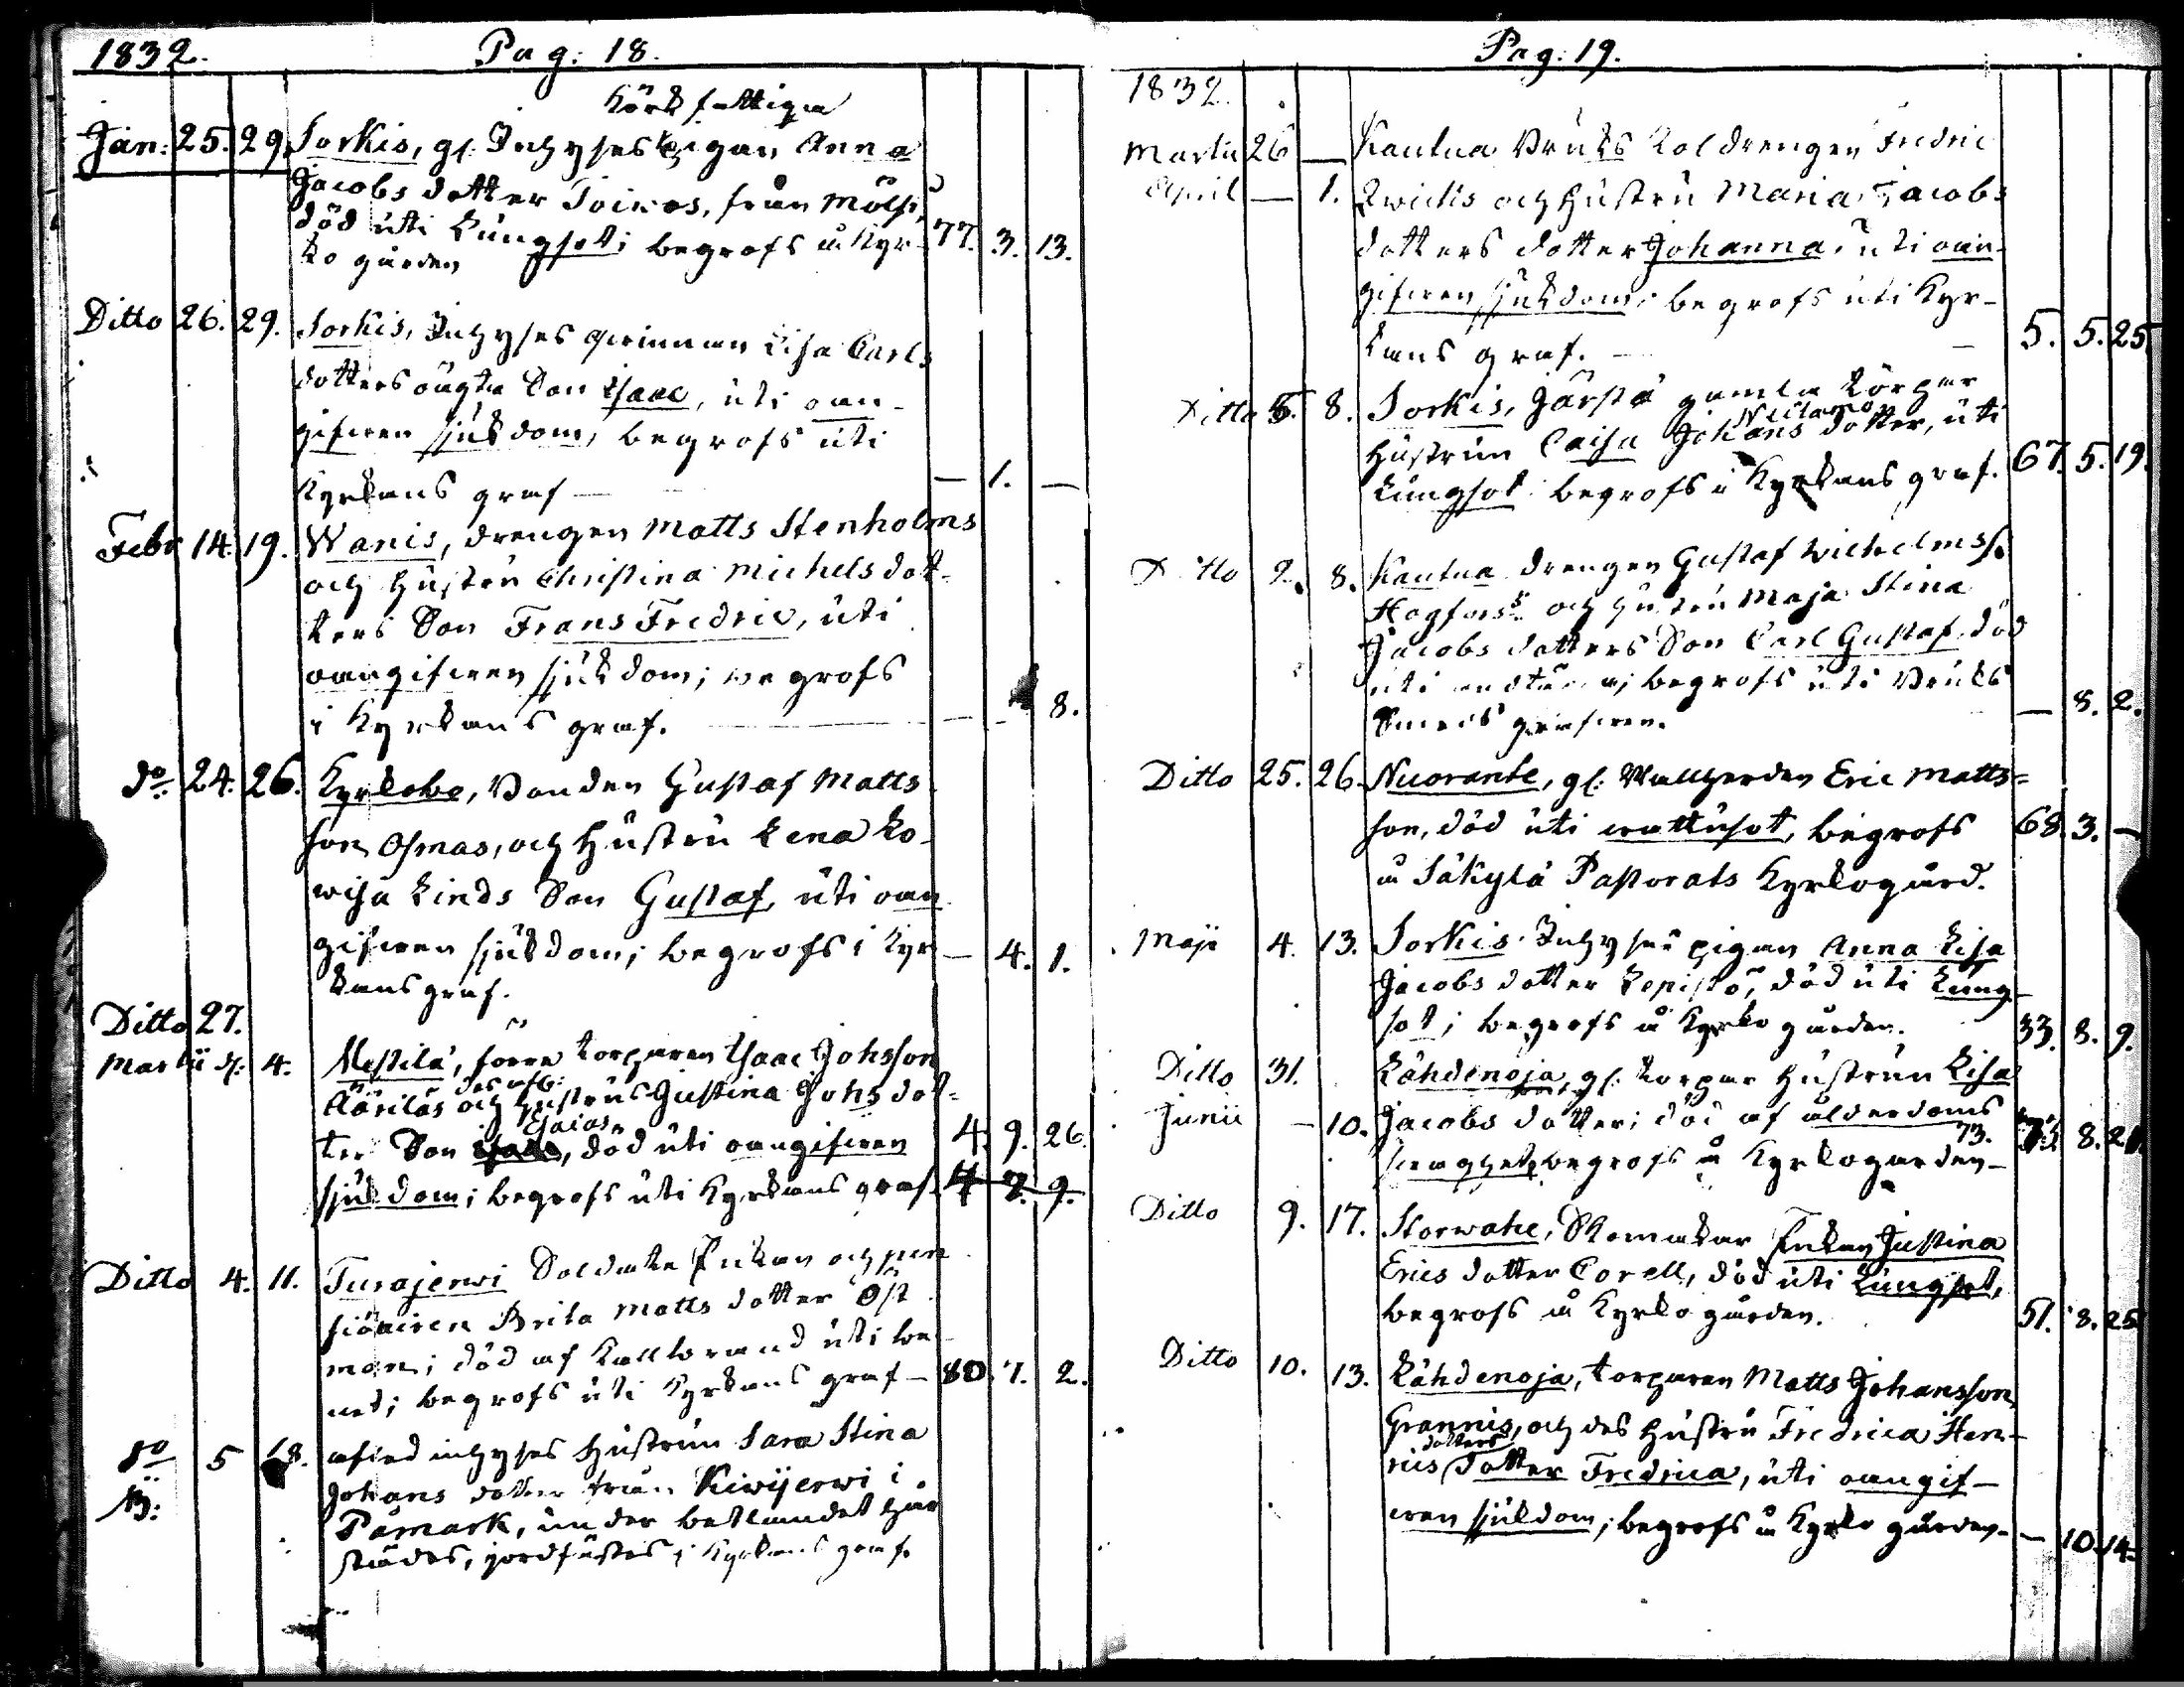 1832. Pag: 18.
Körs fattiga
Jan: 25. 29. Sorkis, gl. Inhyses pigan Anna
Jacobs dotter Toivos, från Mölsi,
död uti Lungsot; begrofs å Kyr- 77. 3. 13.
ko gården
Ditto 26. 29. Sorkis, Inhyses qwinnan Lisa Carls
dotters oägta Son Isaac, uti oan-
gifwen sjukdom, begrofs uti
Kyrkans graf — — 1. —
Febr 14. 19. Wanis, drengen Matts Stenholms
och hustru Christina Michels dot-
ters Son Frans Fredric, uti
oangifwen sjukdom; begrofs
i Kyrkans graf. — 8.
do 24. 26. Kyrkobo, Bonden Gustaf Matts
son Osmas, och Hustru Lena Lo-
wisa Linds Son Gustaf, uti oan
gifwen sjukdom; begrofs i Kyr — 4. 1.
kans graf.
Ditto 27.
Martii 4. Mestilä, förra torparen Isaac Johsson
Äärilös och hustrus Justina Johs dot-
Esaias,
ter Son död uti oangifwen 4. 9. 26.
sjukdom; begrofs uti Kyrkans graf. 4 7. 9.
Ditto 4. 11. Turajerwi Soldate Enkan och pen
sionairen Brita Matts dotter Öst
man; död af Kallbrand uti be-
net; begrofs uti Kyrkans graf — 80. 7. 2.
do 5 18. afled inhyses hustrun Sara Stina
B: Johans dotter från Kiwijerwi i
Påmark, under betlandet här
städes, jordfästes i Kyrkans graf.
Pag: 19.
1832.
Martii 26 — Kautua Bruks Koldrengen Fredric
April — 1. Qwickis och Hustru Maria Jacobs
dotters dotter Johanna, uti oan-
gifwen sjukdom; begrofs uti Kyr-
kans graf. — — 5. 5. 25.
Ditto 5. 8. Sorkis, Järstä gamla Torpar
Hustrun Caisa Johans dotter, uti
Lungsot; begrofs i Kyrkans graf. 67. 5. 19.
Ditto 2. 8. Kautua drengen Gustaf Wilhelmss.
Hogfors och hustru Maja Stina
Jacobs dotters Son Carl Gustaf, död
uti begrofs uti Bruks
Smeds grafwen. — 8. 2.
Ditto 25. 26. Nuorante, gl. Vallherden Eric Matts-
son, död uti wattusot, begrofs 68. 3. —
å Säkylä Pastorats Kyrkogård.
Maji 4. 13. Sorkis Inhyses pigan Anna Lisa
Jacobs dotter Lepistö, död uti Lung-
sot; begrofs å Kyrko gården. 33. 8. 9.
Ditto 31. Lähdenoja, gl. torpar Hustrun Lisa
Junii — 10. Jacobs dotter; död af ålderdoms
73. 8. 21.
swaghet, begrofs å Kyrkogården —
Ditto 9. 17. Storwahe, Skomakar Enkan Justina
Erics dotter Corell, död uti Lungsot,
begrofs å Kyrko gården. 51. 8. 25
Ditto 10. 13. Lähdenoja, torparen Matts Johansson
Grannis, och des Hustru Fredrica Hen-
dotters
rics Dotter Fredrica, uti oangif-
wen sjukdom; begrofs å Kyrko gården — — 10. 14.